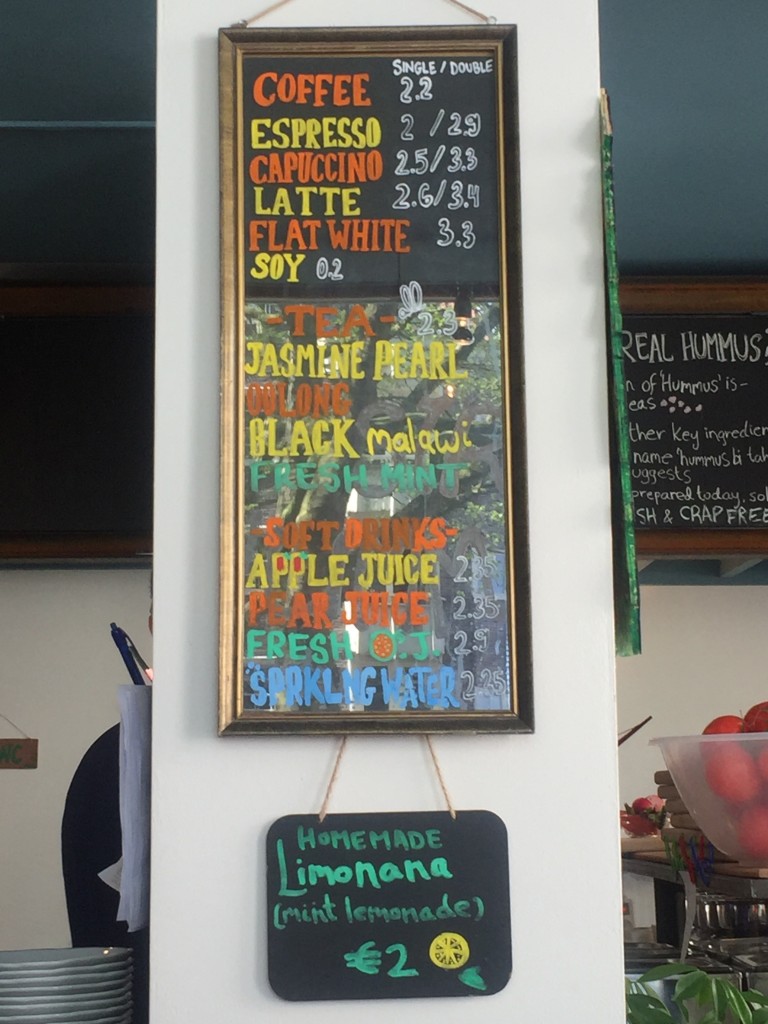 SINGLE / DOUBLE
COFFEE 2.2
ESPRESSO 2 / 2.9
CAPUCCINO 2.5/3.3
LATTE 2.6/3.4
FLAT WHITE 3.3
SOY 0.2
-TEA- 2.3
JASMINE PEARL
OOLONG
BLACK malawi
FRESH MINT
-SOFT DRINKS-
APPLE JUICE 2.35
PEAR JUICE 2.35
FRESH O.J. 2.9
SPRKLNG WATER 2.25
HOMEMADE
Limonana
(mint lemonade)
€2
REAL HUMMUS
n of 'Hummus' is-
eas
ther key ingredien
name 'hummus bi tah
uggests
prepared today, sol
SH & CRAP FREE
WC